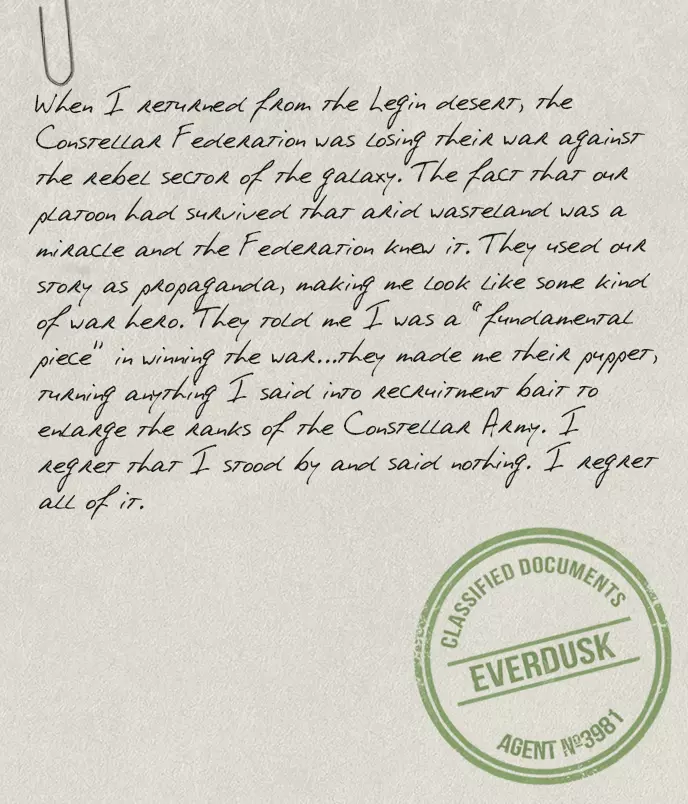 When I returned from the Legin desert, the
Constellar Federation was losing their war against
the rebel sector of the galaxy. The fact that our
platoon had survived that arid wasteland was a
miracle and the Federation knew it. They used our
story as propaganda, making me look like some kind
of war hero. They told me I was a "fundamental
piece" in winning the war...they made me their puppet,
turning anything I said into recruitment bait to
enlarge the ranks of the Constellar Army. I
regret that I stood by and said nothing. I regret
all of it.
CLASSIFIED DOCUMENTS
EVERDUSK
AGENT Nº3981